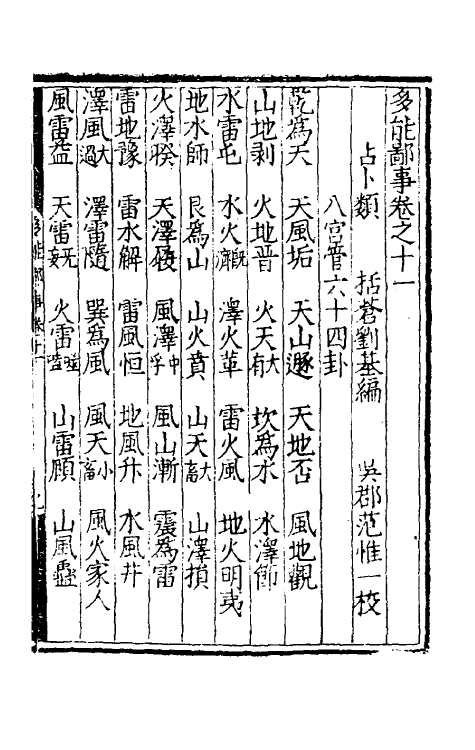 多能鄙事卷之十一
占卜類 括蒼劉基編 吳郡范惟一校
八宮六十四卦
乾為天 天風垢 天山遯 天地否 風地觀
山地剥 火地晋 火天大有 坎為水 水澤節
水雷屯 水火旣濟 澤火革 雷火風 地火明夷
地水師 艮為山 山火賁 山天大畜 山澤損
火澤睽 天澤履 風澤中孚 風山漸 震為雷
雷地豫 雷水解 雷風恒 地風升 水風井
澤風大過 澤雷隨 巽為風 風天小畜 風火家人
風雷益 天雷无妄 火雷噬嗑 山雷頤 山風蠱